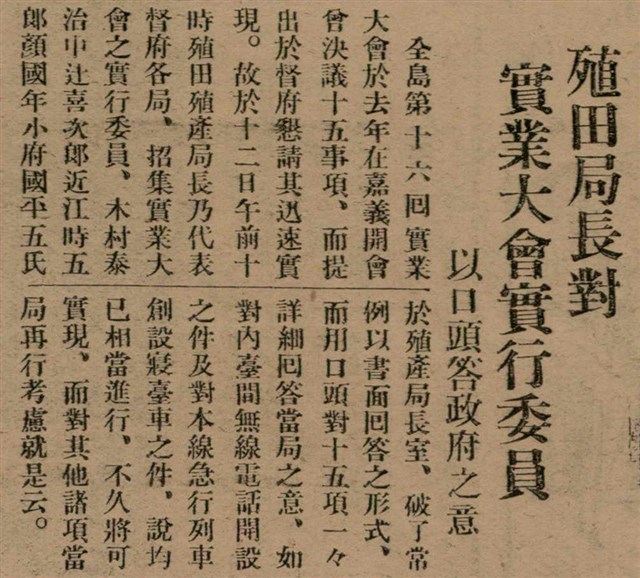 殖田局長對
實業大會實行委員
以口頭答政府之意
全島第十六回實業
大會於去年在嘉義開會
曾決議十五事項、而提
出於督府懇請其迅速實
現。故於十二日午前十
時殖田殖產局長乃代表
督府各局、招集實業大
會之實行委員、木村泰
治中辻喜次郎近江時五
郎顏國年小府國平五氏
於殖產局長室、破了常
例以書面回答之形式、
而用口頭對十五項一々
詳細回答當局之意、如
對內臺間無線電話開設
之件及對本線急行列車
創設寢臺車之件、說均
已相當進行、不久將可
實現、而對其他諸項當
局再行考慮就是云。